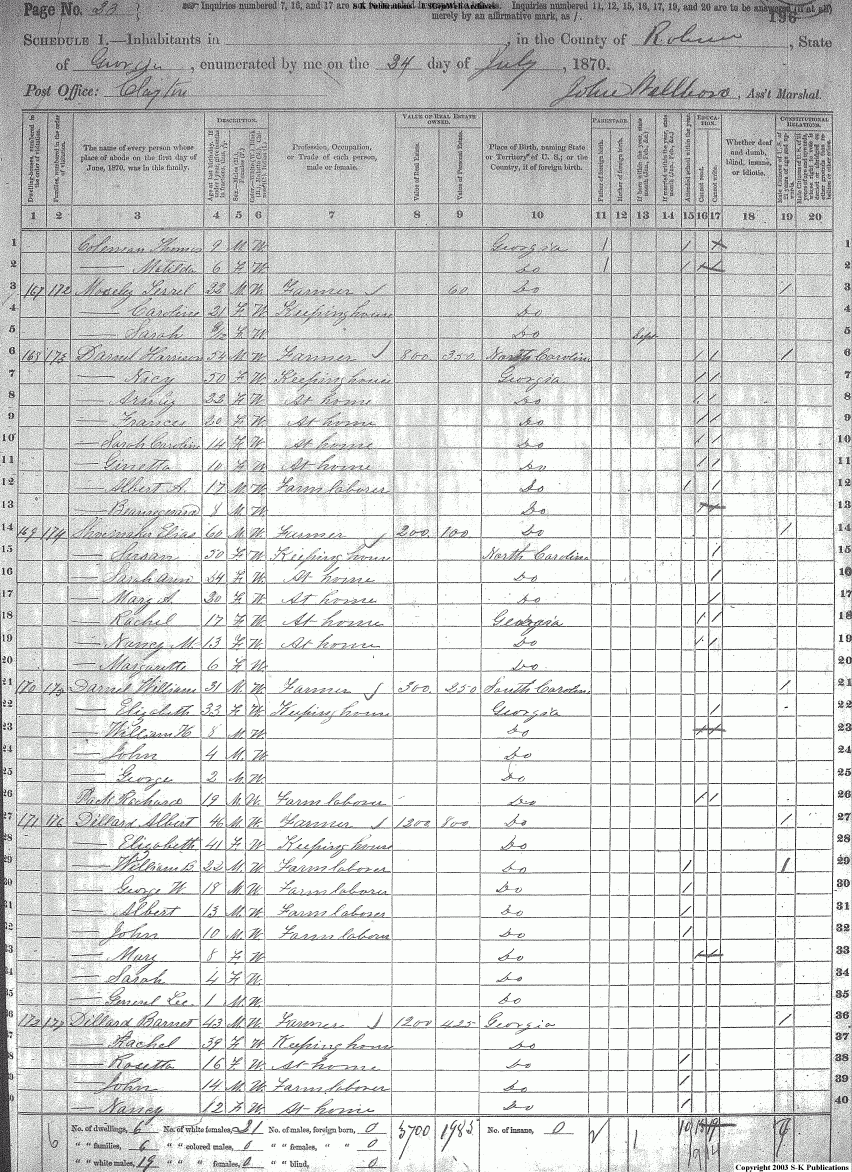 Page No. 23
Inquiries numbered 7, 16, and 17 are
S-K Publications
Inquiries numbered 11, 12, 15, 16, 17, 19, and 20 are to be answered (if at all)
merely by an affirmative mark, as /.
196
SCHEDULE 1.—Inhabitants in , in the County of , State
of Georgia, enumerated by me on the 24 day of July, 1870.
Post Office: Clayton
John , Ass't Marshal.
DESCRIPTION. VALUE OF REAL ESTATE OWNED. PARENTAGE. EDUCATION. CONSTITUTIONAL RELATIONS.
The name of every person whose place of abode on the first day of June, 1870, was in this family.
Profession, Occupation, or Trade of each person, male or female.
Value of Real Estate. Value of Personal Estate.
Place of Birth, naming State or Territory of U. S.; or the Country, if of foreign birth.
Father of foreign birth. Mother of foreign birth.
Attended school within the year. Cannot read. Cannot write.
Whether deaf and dumb, blind, insane, or idiotic.
1 2 3 4 5 6 7 8 9 10 11 12 13 14 15 16 17 18 19 20
1 Coleman Thomas 9 M W Georgia / / / 1
2 — Matilda 6 F W Do / / 2
3 167 172 Mosely 22 M W Farmer 60 Do / 3
4 — Caroline 21 F W Keeping house Do 4
5 — Sarah F W Do Sept 5
6 168 173 Darnel Harrison 54 M W Farmer 800 350 North Carolina / / / 6
7 — Nicy 50 F W Keeping house Georgia / / 7
8 — 22 F W At home Do / / 8
9 — Frances 20 F W At home Do / / 9
10 — Sarah Caroline 14 F W At home Do / / 10
11 — Ginetta 10 F W At home Do / / 11
12 — Albert A. 17 M W Farm laborer Do / / 12
13 — 8 M W Do 13
14 169 174 Shoemaker Elias 60 M W Farmer 200 100 Do / 14
15 — Susan 50 F W Keeping house North Carolina / 15
16 — Sarah Ann F W At home Do / 16
17 — Mary A. 20 F W At home Do / 17
18 — Rachel 17 F W At home Georgia / / 18
19 — Nancy M. 13 F W At home Do / / 19
20 — Margarette 6 F W Do 20
21 170 175 Darnel William 31 M W Farmer 300 250 South Carolina / 21
22 — Elizabeth 33 F W Keeping house Georgia / 22
23 — William H 8 M W Do 23
24 — John 4 M W Do 24
25 — George 2 M W Do 25
26 Richard 19 M W Farm laborer Do / / 26
27 171 176 Dillard Albert 46 M W Farmer 1200 800 Do / 27
28 — Elizabeth 41 F W Keeping house Do 28
29 — William B. 22 M W Farm laborer Do / / 29
30 — George W. 18 M W Farm laborer Do / 30
31 — Albert 13 M W Farm laborer Do / 31
32 — John 10 M W Farm laborer Do / 32
33 — Mary 8 F W Do 33
34 — Sarah 4 F W Do 34
35 — General Lee 1 M W Do 35
36 172 177 Dillard Barnet 43 M W Farmer 1200 425 Georgia / 36
37 — Rachel 39 F W Keeping house Do 37
38 — Rosetta 16 F W At home Do / 38
39 — John 14 M W Farm laborer Do / 39
40 — Nancy 12 F W At home Do / 40
No. of dwellings, 6 No. of white females, 21 No. of males, foreign born, 0 3700 1985 No. of insane, 0
" " families, 6 " " colored males, 0 " " females, " " 0
" " white males, 19 " " females, 0 " " blind, 0
Copyright 2003 S-K Publications